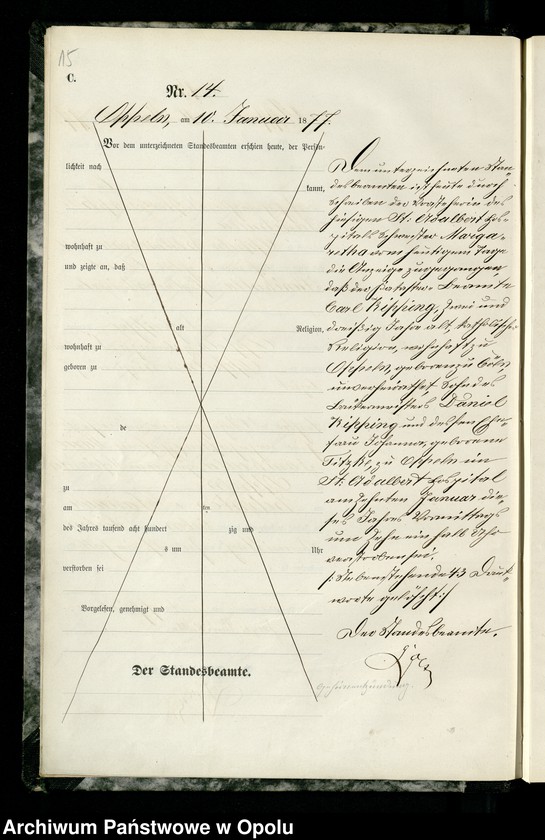 15
C.
Nr. 14.
Oppeln, am 10. Januar 1877.
Vor dem unterzeichneten Standesbeamten erschien heute, der Persön-
lichkeit nach
kannt,
wohnhaft zu
und zeigte an, daß
alt Religion,
wohnhaft zu
geboren zu
de
zu
am ten
des Jahres tausend acht hundert zig und
s um Uhr
verstorben sei
Vorgelesen, genehmigt und
Der Standesbeamte.
Dem unterzeichneten Stan-
desbeamten ist heute durch
Schreiben der Vorsteherin des
hiesigen St. Adalbert Hos-
pitals Schwester Marga-
retha vom heutigen Tage
die Anzeige zugegangen,
daß der Kataster-Beamte
Carl Kipping, zwei und
dreißig Jahre alt, katholischer
Religion, wohnhaft zu
Oppeln, geboren zu Cöln,
unverheirathet, Sohn des
Daniel
Kipping und dessen Ehe-
frau Johanna, geborene
Titzke, zu Oppeln im
St. Adalbert Hospital
am zehnten Januar die-
ses Jahres Vormittags
um zehn ein halb Uhr
verstorben sei.
/: Nebenstehende 43 Druck-
worte gelöscht :/
Der Standesbeamte.
Gehirnentzündung.
Archiwum Państwowe w Opolu